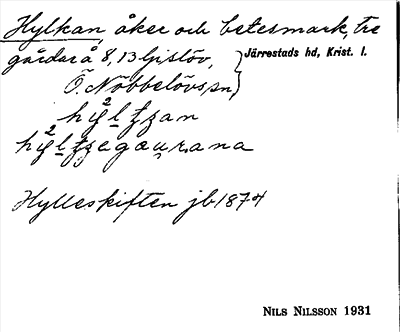 Hylkan, åker och betesmark, tre
gårdar å 8, 13 Gislöv,
Ö. Nöbbelövs sn,
Järrestads hd, Krist. l.
Hylleskiften jb 1874
NILS NILSSON 1931